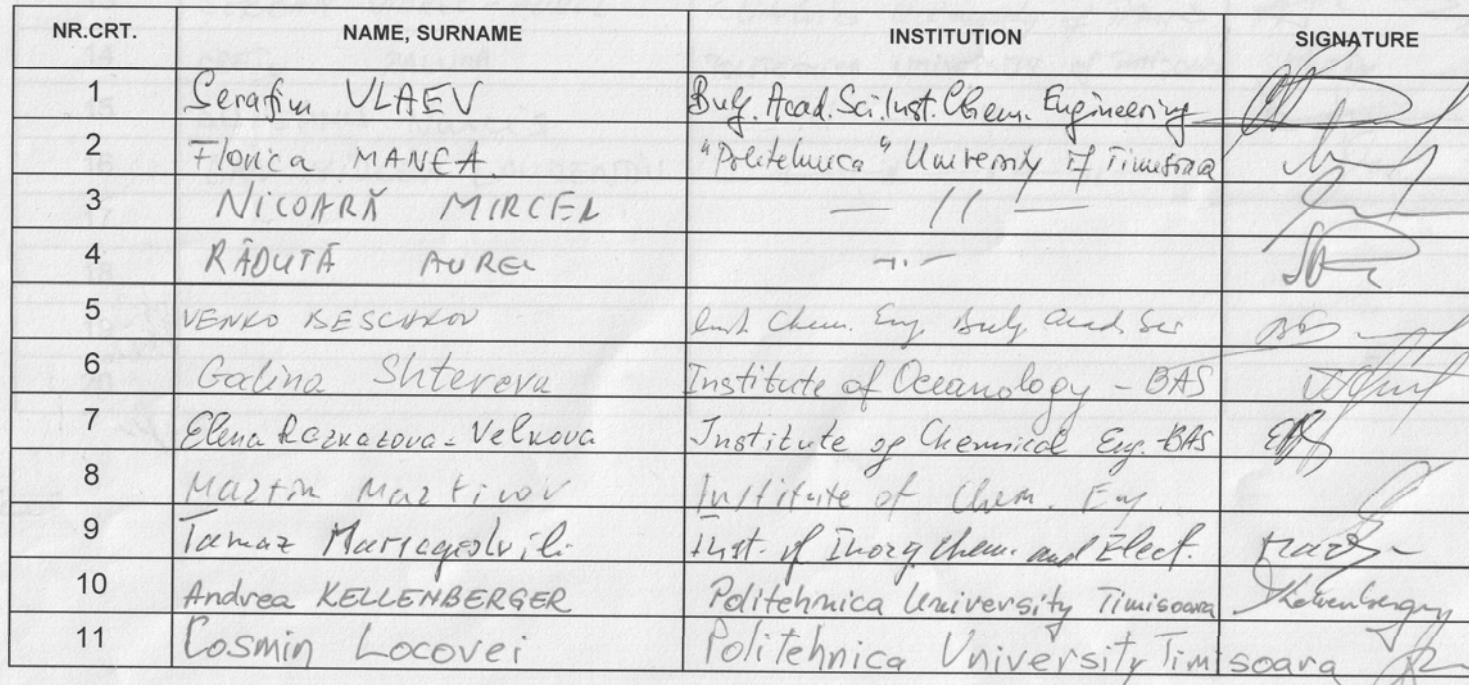 NR.CRT. NAME, SURNAME INSTITUTION SIGNATURE
1 Serafim VLAEV Bulg. Acad. Sci. Inst. Chem. Engineering
2 Florica MANEA "Politehnica" University of Timisoara
3 NICOARĂ MIRCEA — // —
4 RĂDUTĂ AUREL —·—
5 VENKO BESCHKOV Inst. Chem. Eng. Bulg. Acad. Sci
6 Galina Shtereva Institute of Oceanology - BAS
7 Elena Razkazova-Velkova Institute of Chemical Eng. -BAS
8 Martin Martinov Institute of Chem. Eng.
9 Tamaz Inst. of Inorg. Chem. and Elect.
10 Andrea KELLENBERGER Politehnica University Timisoara Kellenberger
11 Cosmin Locovei Politehnica University Timisoara